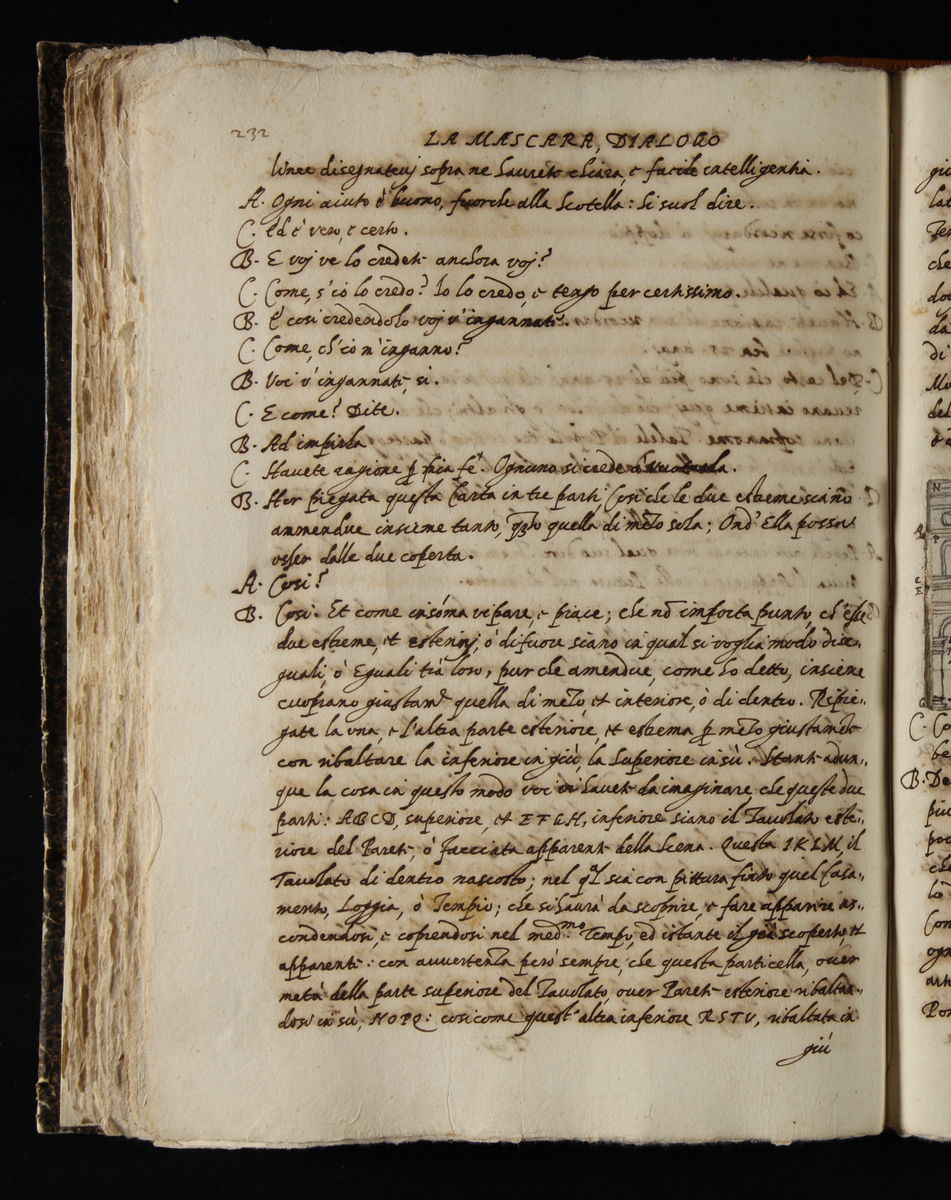 232
LA MASCARA, DIALOGO
linee disegnatevj sopra ne haurete chiara, e facile intelligentia.
A. Ogni aiuto è buono, fuorche alla Scotella: si suol dire.
C. Ed è vero, e certo.
B. E voj ve lo credete anchora voj?
C. Come, s'io lo credo? Io lo credo, e tengo per certissimo.
B. E così credendolo voj v'ingannate.
C. Come, ch'io m'inganno?
B. Voi v'ingannate, si.
C. E come? Dite.
B. Ad impirla
C. Havete ragione p mia fé. Ognuno si crede à
B. Hor piegata questa Carta in tre parti, Così che le due estreme siano
ammendue insieme tanto, qto quella di mezo sola; Ond' Ella possa
esser dalle due coperta.
A. Così?
B. Così. Et come insõma vi pare, e piace; che nõ importa punto, ch'esse
due estreme, et esteriorj, ò di fuore siano in qual si voglia modo dise„
guali, ò Eguali trà loro, pur che amendue, come hò detto, insieme
cuoprano giustamte quella di mezo, et interiore, ò di dentro. Ripie„
gate la una, e l'altra parte esteriore, et estrema p mezo giustamẽte
con ribaltare la inferiore in giù, la superiore in sù. Stante adun„
que la cosa in questo modo voi vi havete da imaginare, che queste due
parti: ABCD, superiore, et EFGH, inferiore siano il Tavolato este„
riore del Parete, ò facciata apparente della Scena. Questa IKLM, il
Tavolato di dentro nascosto; nel ql sia con pittura finto quel Casa„
mento, Loggia, ò Tempio; che si haurà da scoprire, e fare apparire as„
condendosi, e coprendosi nel medmo Tempo, ed istante il già scoperto, et
apparente: con avvertenza però sempre, che questa particella, over
metà della parte superiore del Tavolato, over Parete esteriore ribaltan„
dosi in sù, NOPQ: così come quest' altra inferiore RSTV, ribaltata in
giù